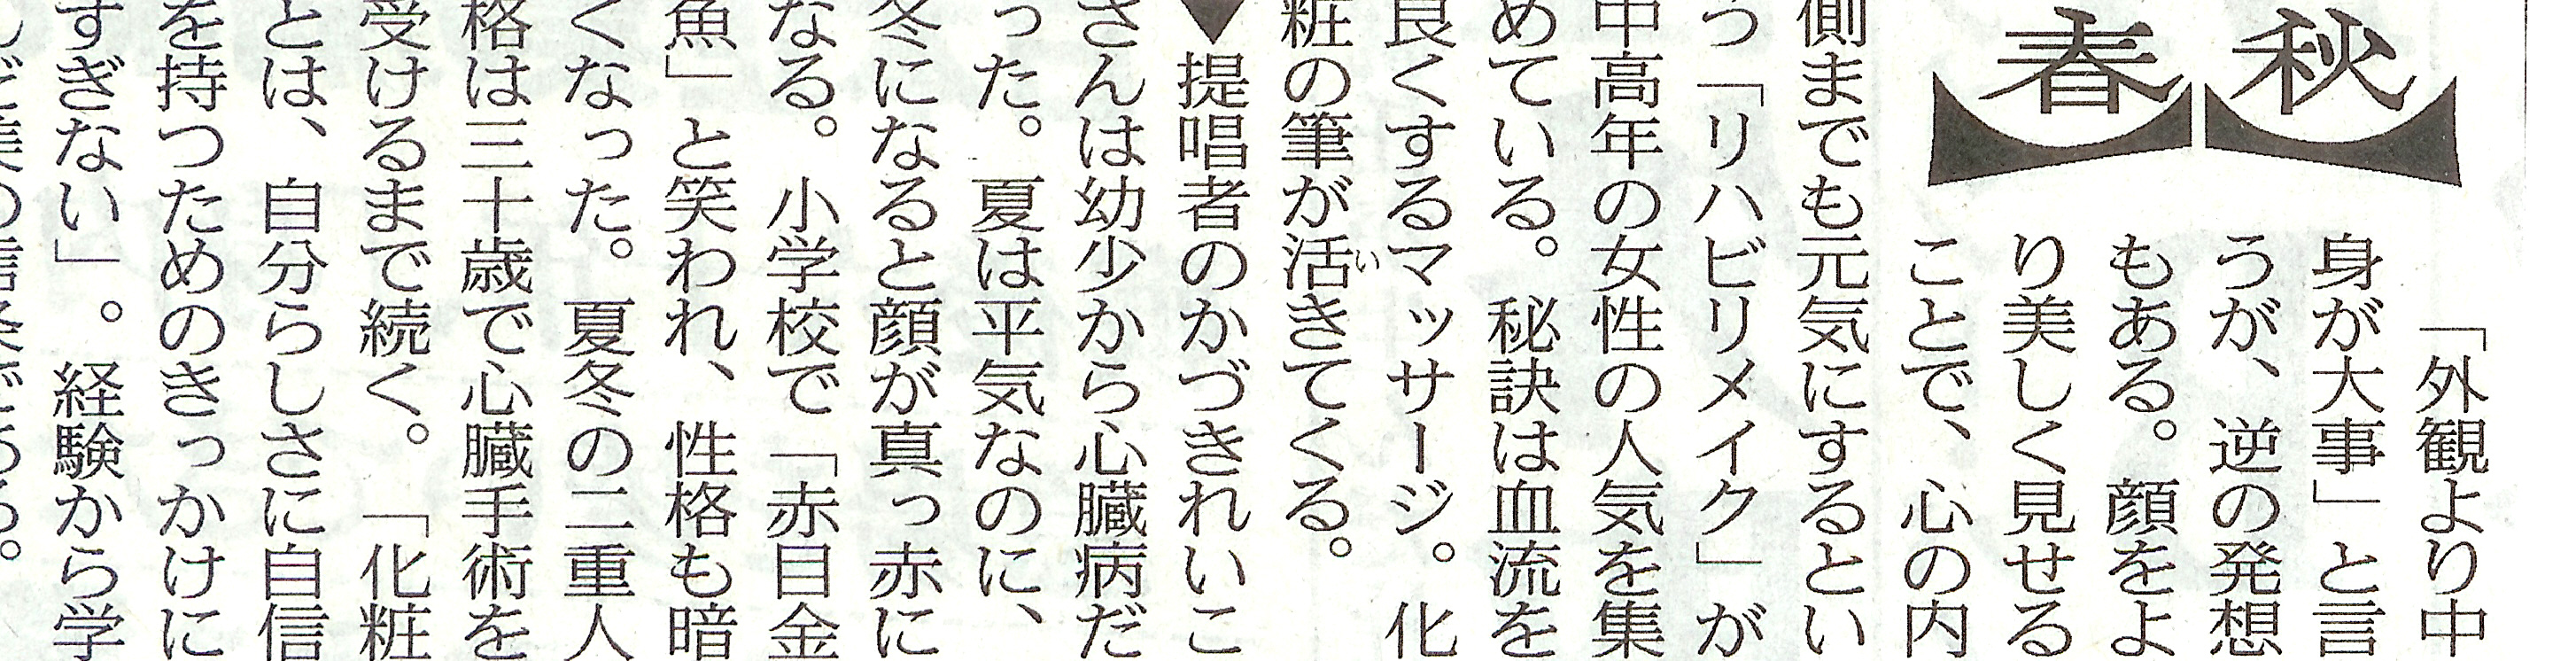 春秋
「外観より中
身が大事」と言
うが、逆の発想
もある。顔をよ
り美しく見せる
ことで、心の内
側までも元気にするとい
う「リハビリメイク」が
中高年の女性の人気を集
めている。秘訣は血流を
良くするマッサージ。化
粧の筆が活いきてくる。
▼提唱者のかづきれいこ
さんは幼少から心臓病だ
った。夏は平気なのに、
冬になると顔が真っ赤に
なる。小学校で「赤目金
魚」と笑われ、性格も暗
くなった。夏冬の二重人
格は三十歳で心臓手術を
受けるまで続く。「化粧
とは、自分らしさに自信
を持つためのきっかけに
すぎない」。経験から学
んだ美の信条である。